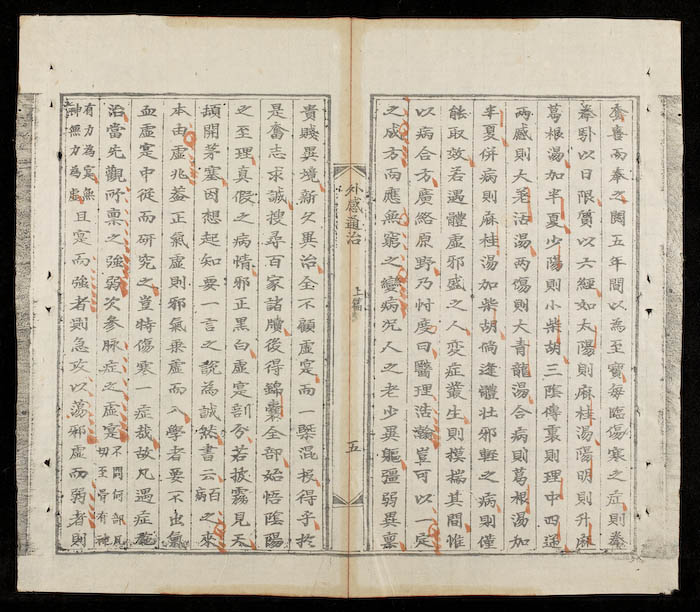 喜而奉之閱五年間以為至寶每臨傷寒之症則拳
拳卧以日限質以六經如太陽則麻桂湯陽明則升麻
葛根湯加半夏少陽則小柴胡三陰傳裏則理中四逆
兩感則大羌活湯兩傷則大青龍湯合病則葛根湯加
半夏併病則麻桂湯加柴胡倘逢體壯邪輕之病則僅
能取效若遇體虛邪盛之人变症叢生則摸揣其間惟
以病合方廣絡原野乃忖度曰醫理浩瀚豈可以一定
之成方而應無窮之變病况人之老少異軀彊弱異禀
外感通治 上篇 五
貴賤異境新久異治全不顧虛寔而一槩混投得乎扵
是奮志求誠搜尋百家諸牘後得錦囊全部始悟陰陽
之至理真假之病情邪正黑白虛寔剖分若披霧見天
頓開茅塞因想起知要一言之說為誠然書云百病之來
本由虛兆盖正氣虛則邪氣乘虛而入學者要不出氣
血虛寔中從而研究之豈特傷寒一症哉故凡遇症施
治當先觀所禀之強弱次參脉症之虛寔不問何部見切至骨有神
有力為寔無神無力為虛且寔而強者則急攻以蕩邪虛而弱者則